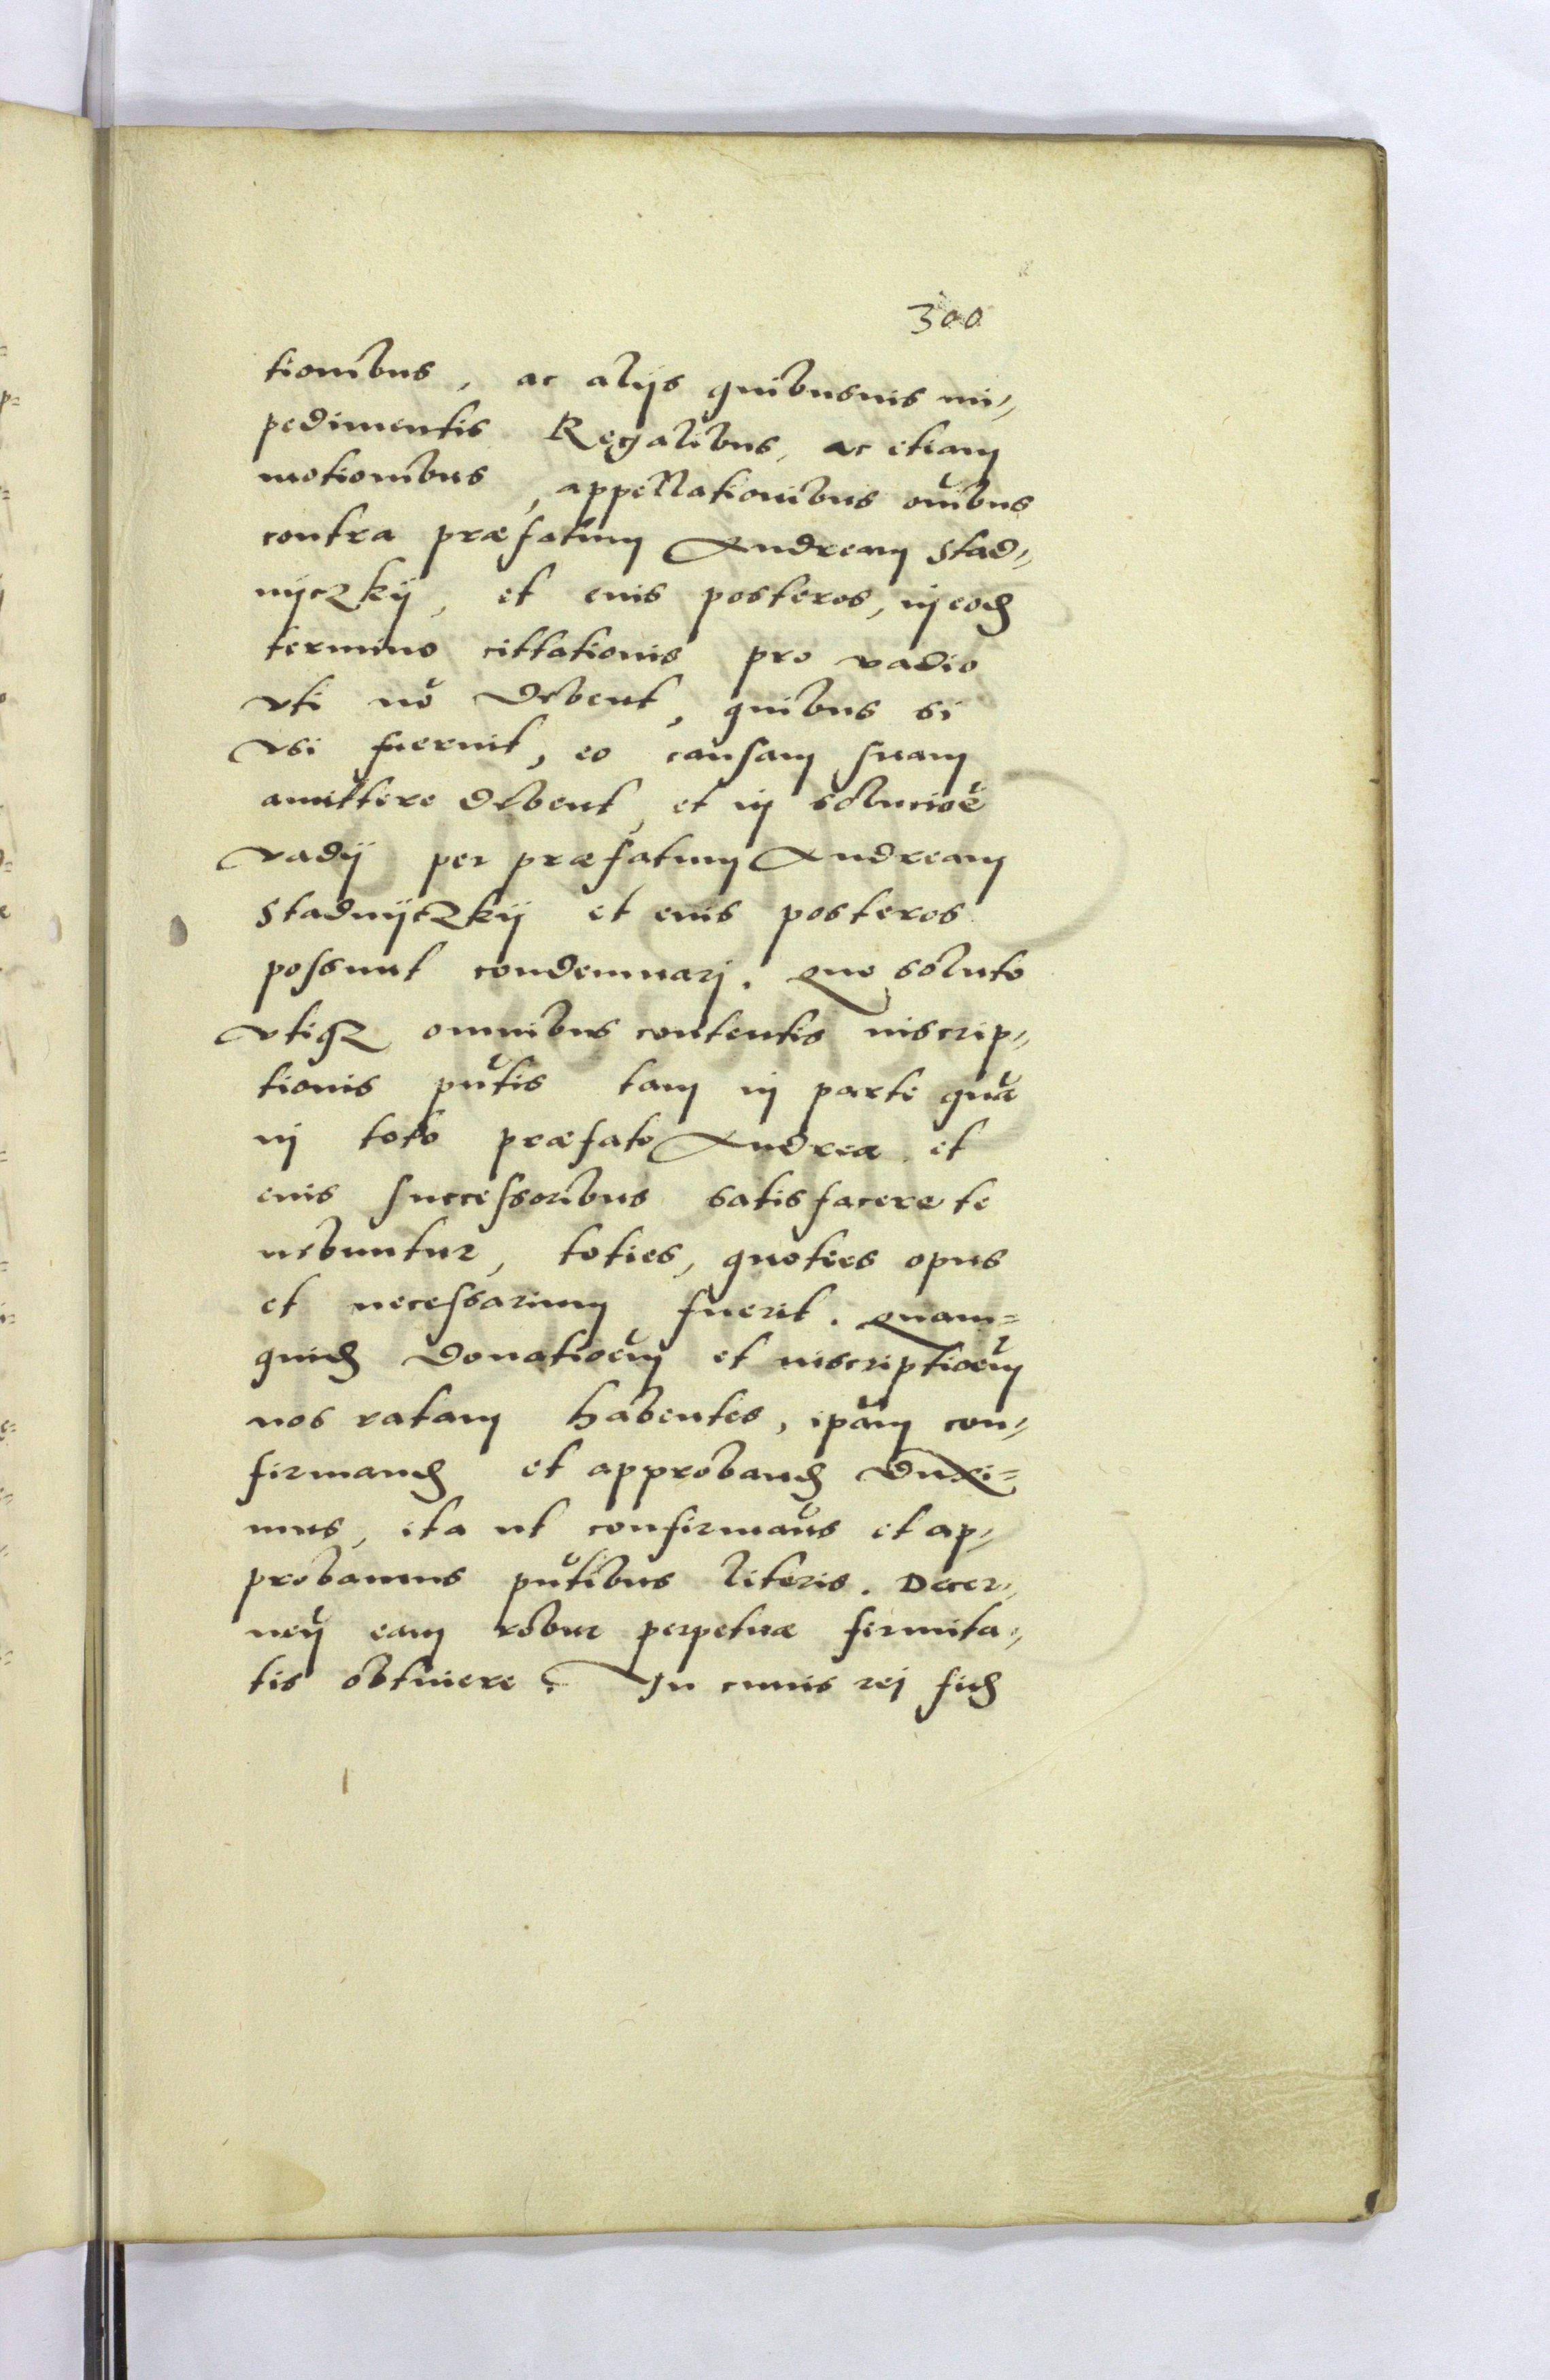 300
tionibus, ac alijs quibusuis im-
pedimentis Regalibus, ac etiam
motionibus, appellationibus oĩbus
contra præfatum Andream Stad-
nijczkij, et eius posteros, in eod̃
termino cittationis pro vadio
vti nõ debent, quibus si
vsi fuerint, eo causam suam
amittere debent, et in solucioẽ
vadij per præfatum Andream
Stadnijczkij et eius posteros
possunt condemnari. Quo soluto
vtiqz omnibus contentis inscrip-
tionis pñtis tam in parte quã
in toto præfato Andreæ et
eius successoribus satisfacere te
nebuntur, toties, quoties opus
et necessarium fuerit. Quam=
quid̃ Donatioẽm et inscriptioẽm
nos ratam habentes, ip̃am con-
firmand̃ et approband̃ duxi=
mus, ita ut confirmaũs et ap-
probamus pñtibus literis. Decer-
neñ eam robur perpetuæ firmita-
tis obtinere. In cuuis rei fid̃